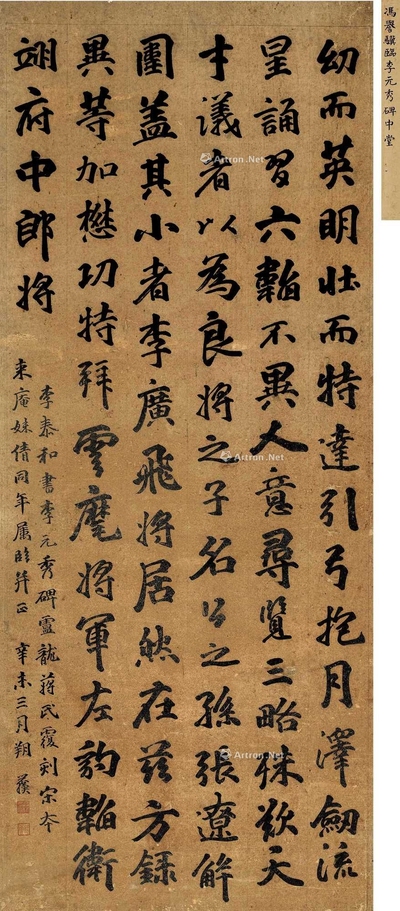 幼而英明壯而特達引弓抱月澤劍流
星誦習六韜不異人意尋覽三略殊歎天
才議者以為良將之子名公之孫張遼解
圍蓋其小者李廣飛將居然在茲方錄
異等加懋功特拜雲麾將軍左豹韜衛
翊府中郎將
李泰和書李元秀碑靈龍蔣氏覆刻宋本
來庵妹倩同年屬臨并正 辛未三月朔
馮譽驥臨李元秀碑中堂
Artron.Net
Artron.Net
Artron.Net
Artron.Net
Artron.Net
Artron.Net